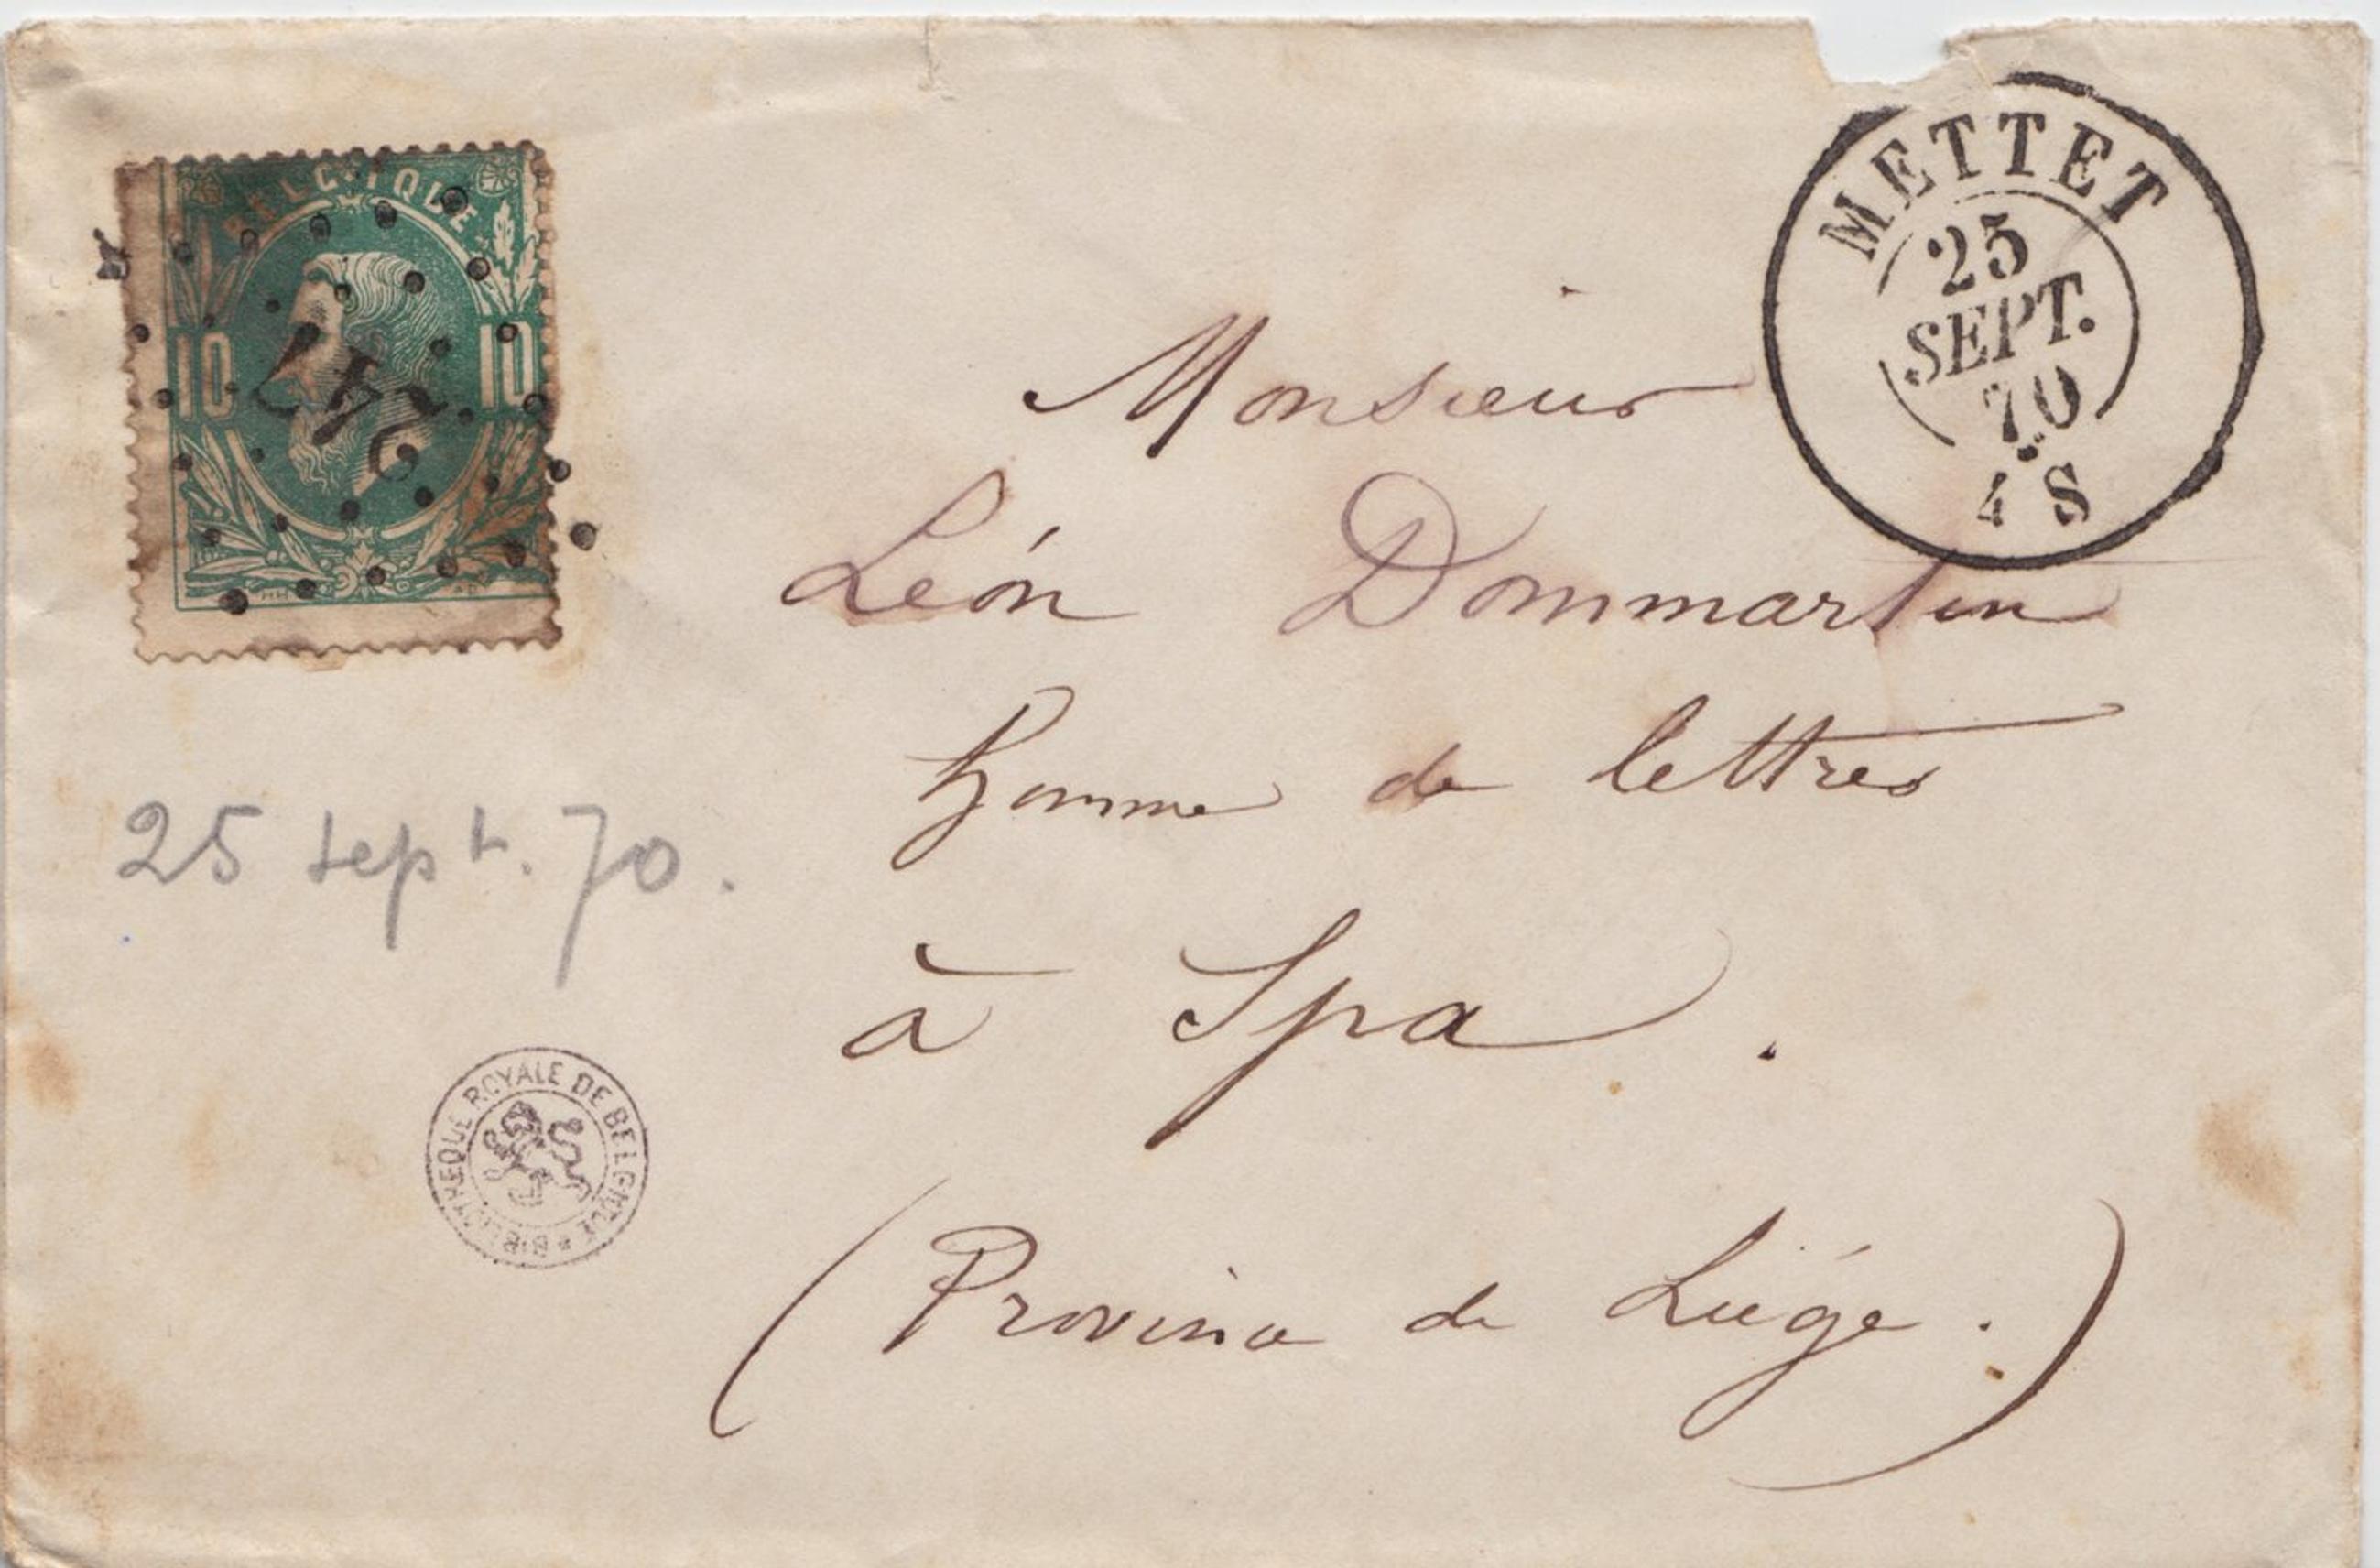 BELGIQUE
10 10
247
METTET
25
SEPT.
70
4 S
Monsieur
Léon Dommartin
homme de lettres
à Spa.
(Province de Liége.)
25 sept. 70.
BIBLIOTHEQUE ROYALE DE BELGIQUE *